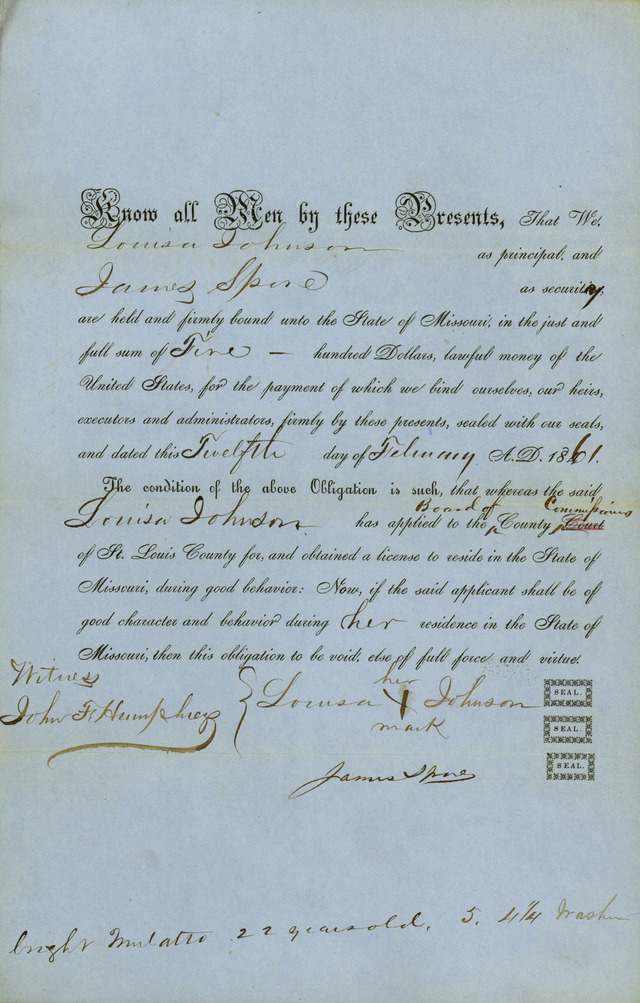 Know all Men by these Presents, That We,
Louisa Johnson as principal, and
James Spore as security,
are held and firmly bound unto the State of Missouri, in the just and
full sum of Five — hundred Dollars, lawful money of the
United States, for the payment of which we bind ourselves, our heirs,
executors and administrators, firmly by these presents, sealed with our seals,
and dated this Twelfth day of February A.D. 1861.
The condition of the above Obligation is such, that whereas the said
Board of Commissions
Louisa Johnson has applied to the County Court
of St. Louis County for, and obtained a license to reside in the State of
Missouri, during good behavior: Now, if the said applicant shall be of
good character and behavior during her residence in the State of
Missouri, then this obligation to be void, else of full force and virtue.
Witness
her
Louisa X Johnson SEAL.
John F Humphreys
mark SEAL.
James Spore SEAL.
bright Mulatto 22 years old, 5. 4 1/4 Washer